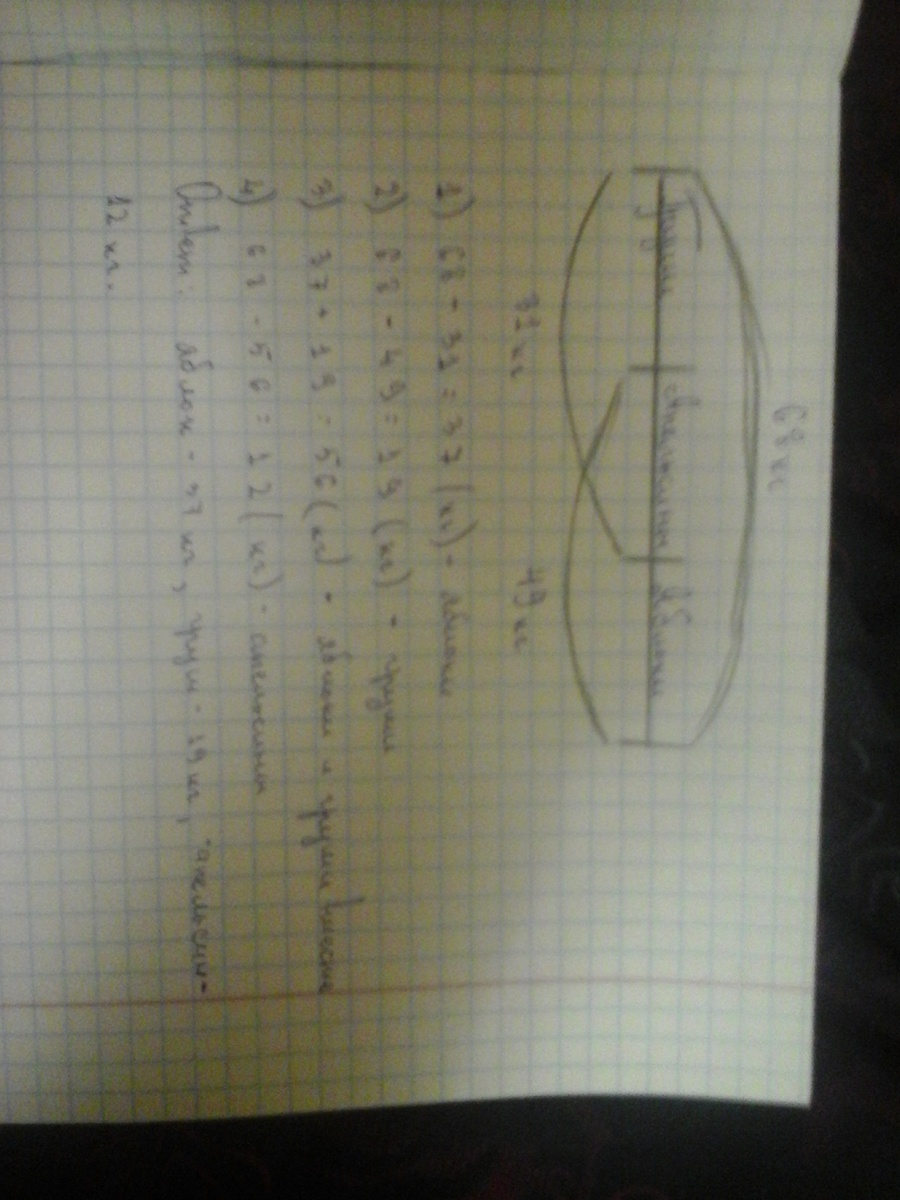 68 кг
Груши Апельсины Яблоки
31 кг 49 кг
1) 68 - 31 = 37 (кг) - яблоки
2) 68 - 49 = 19 (кг) - груши
3) 37 + 19 = 56 (кг) - яблоки и груши вместе
4) 68 - 56 = 12 (кг) - апельсины
Ответ: яблок - 37 кг, груш - 19 кг, апельсин-
12 кг.